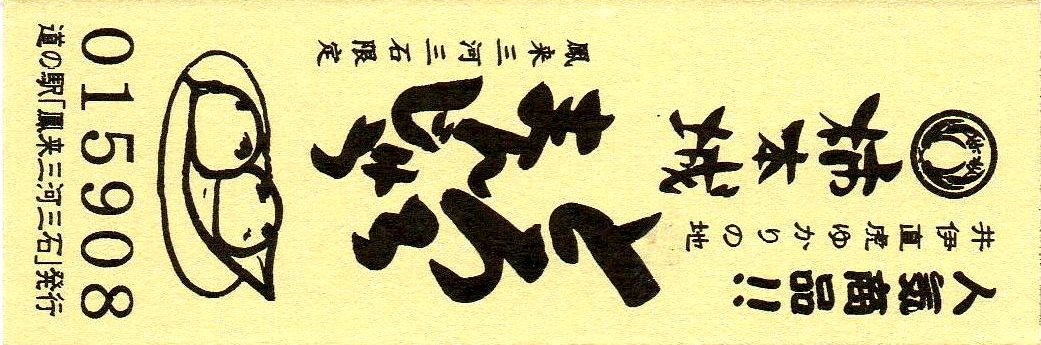 人気商品!!
井伊直虎ゆかりの地
柿本城
とろろ
まんじゅう
鳳来三河三石限定
015908
道の駅「鳳来三河三石」発行